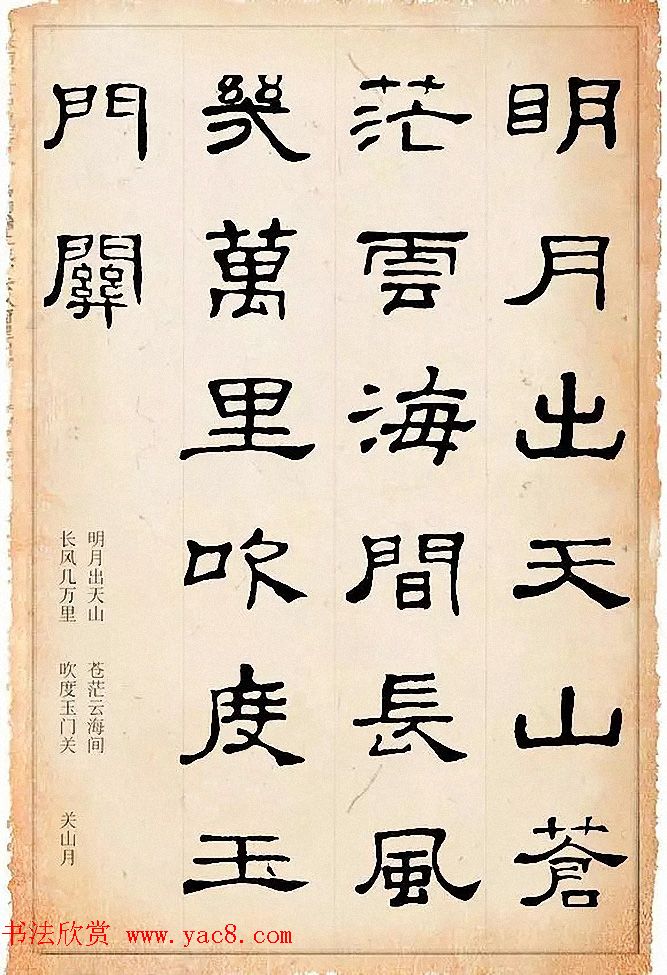 明月出天山蒼
茫雲海間長風
幾萬里吹度玉
門關
明月出天山 苍茫云海间
长风几万里 吹度玉门关
关山月
书法欣赏 www.yac8.com